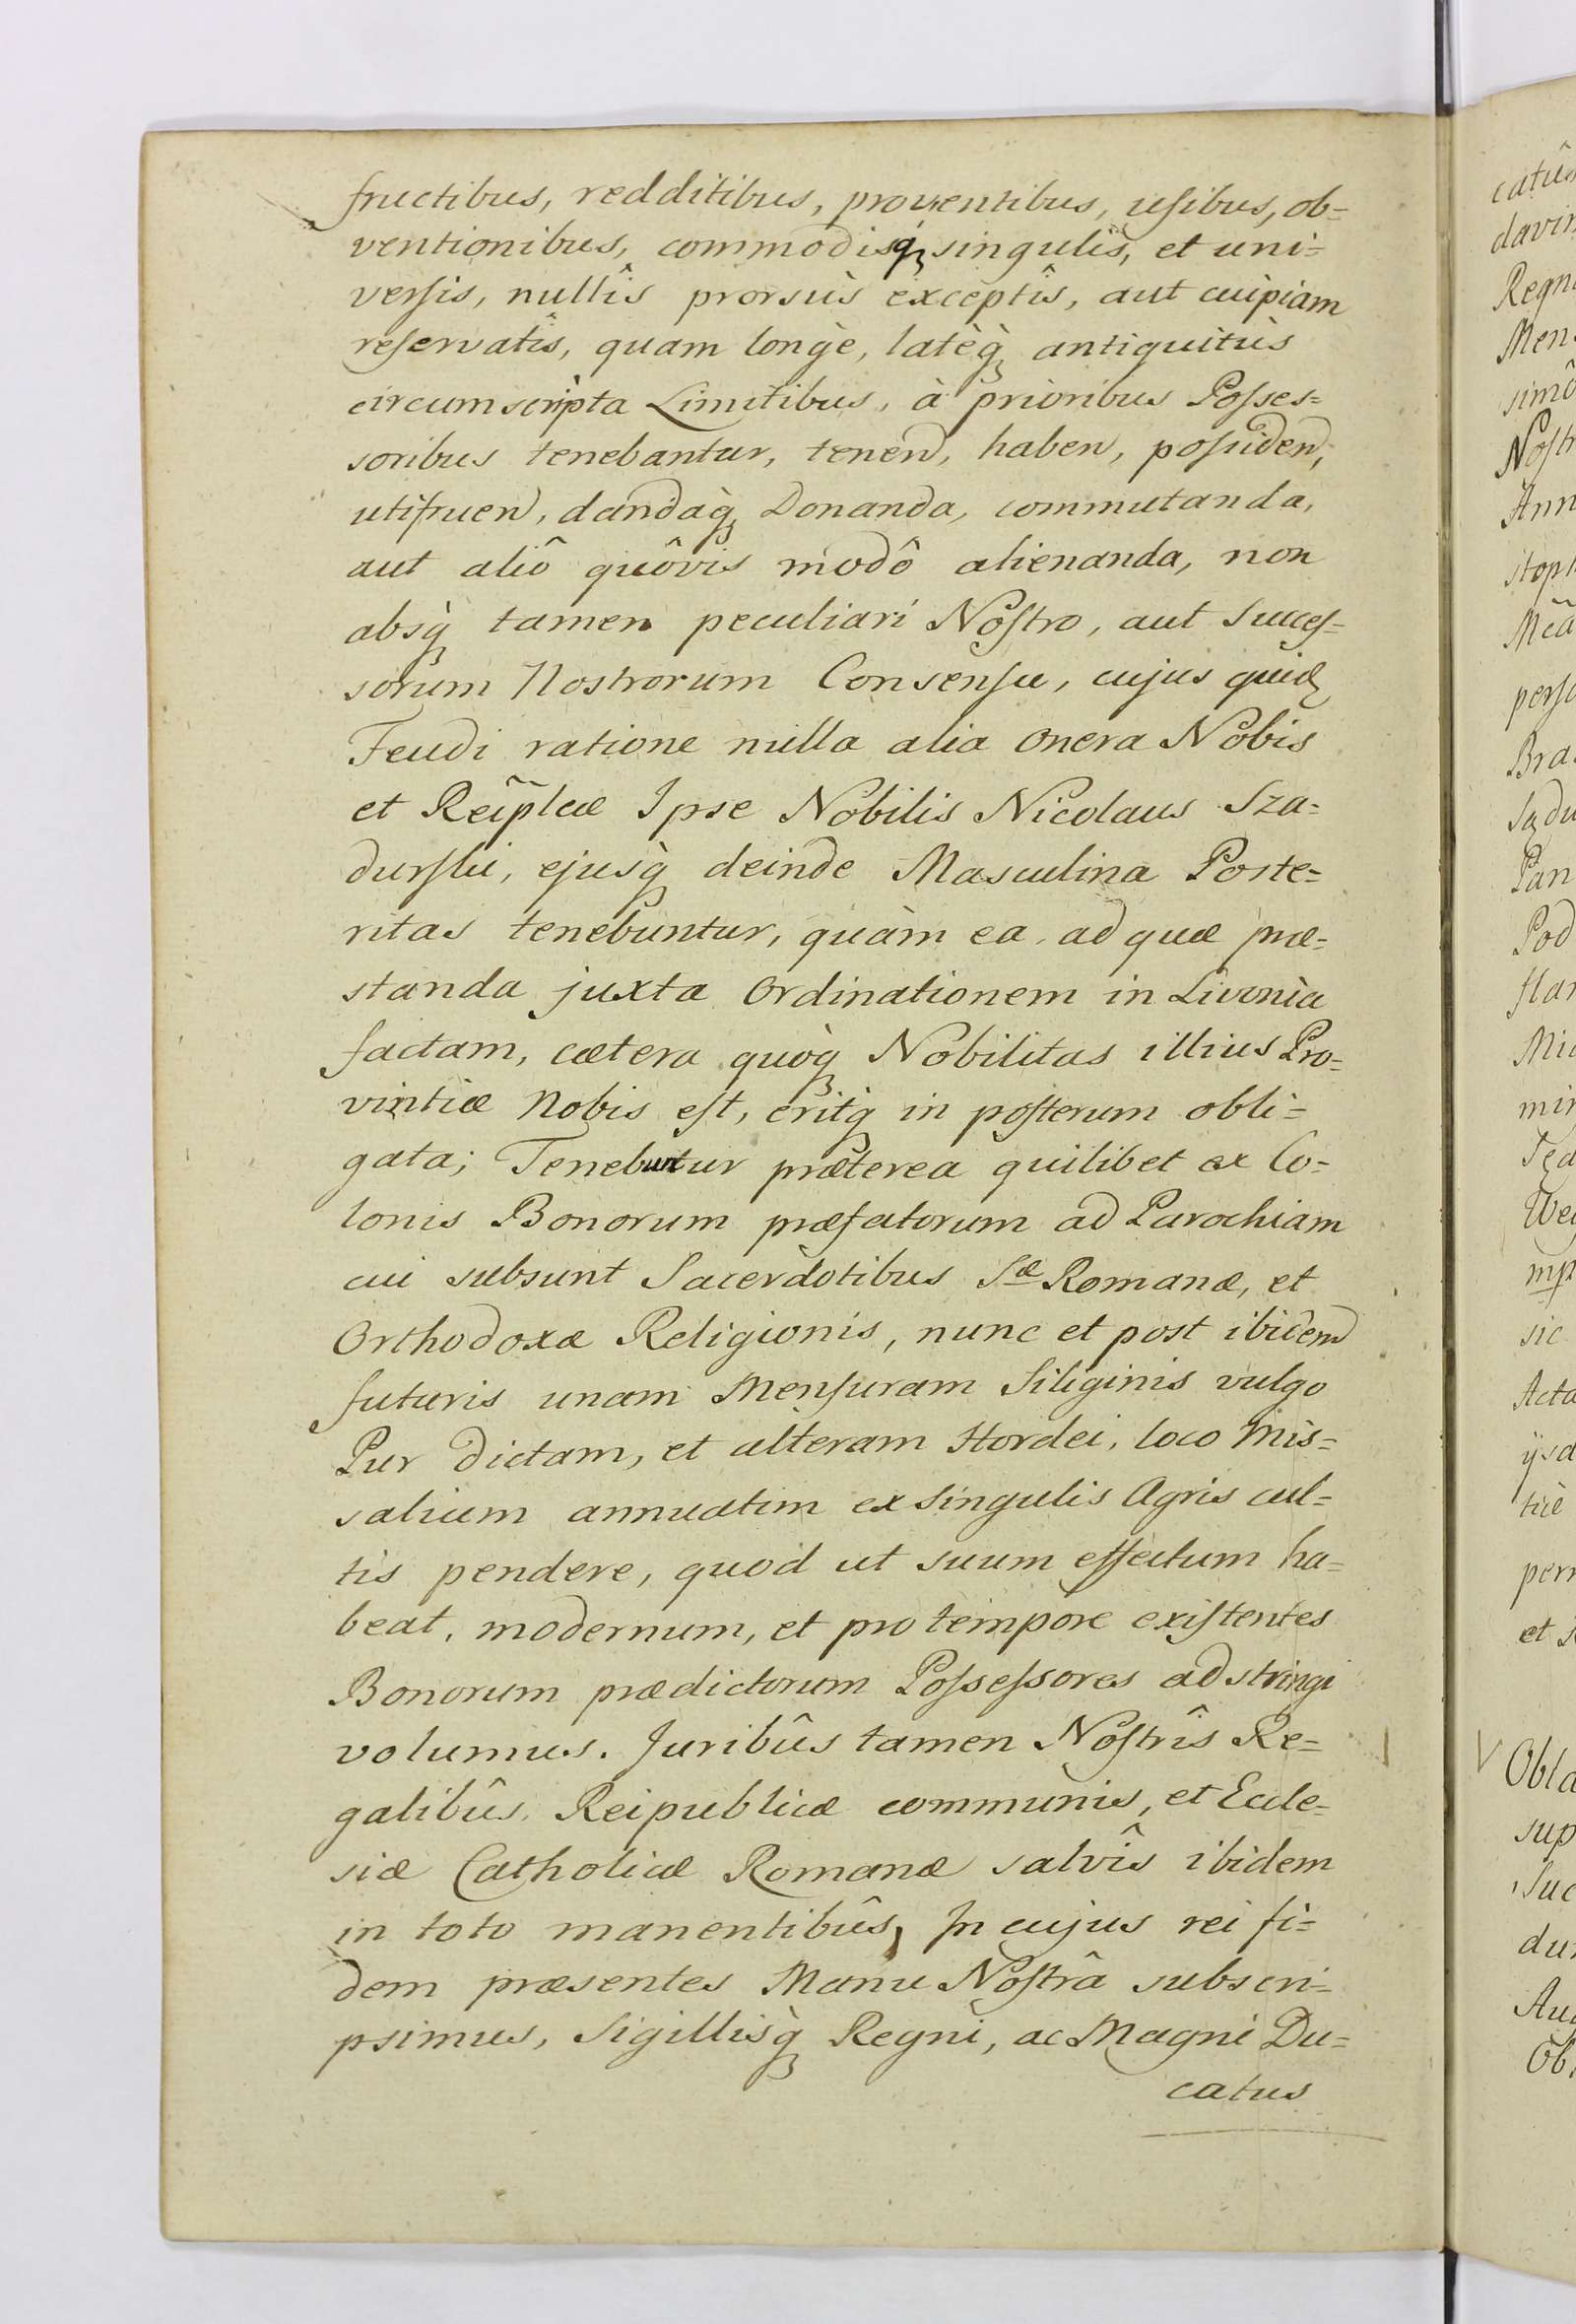 fructibus, redditibus, proventibus, usibus, ob=
ventionibus, commodisq́; singulis, et uni=
versis, nullîs prorsùs exceptîs, aut cuipiam
reservatîs, quam longè, latèq̀; antiquitùs
circumscripta Limitibus, à prioribus Posses=
soribus tenebantur, tenend, haben, possidend,
utifruend, dandaq̀; Donanda, commutanda,
aut aliô quôvis modô alienanda, non
absq̀; tamen peculiari Nostro, aut Succes=
sorum Nostrorum Consensu, cujus quid;
Feudi ratione nulla alia onera Nobis
et Reip̃lcæ Ipse Nobilis Nicolaus Sza=
durski, ejusq̀; deinde Masculina Poste=
ritas tenebuntur, quàm ea ad quæ præ=
standa juxta Ordinationem in Livonia
factam, cætera quoq̀; Nobilitas illius Pro=
vintiæ Nobis est, eritq̀; in posterum obli=
gata; Tenebuntur præterea quilibet ex Co=
lonis Bonorum præfatorum ad Parochiam
cui subsunt Sacerdotibus Sæ Romanæ, et
Orthodoxæ Religionis, nunc et post ibidem
futuris unam Mensuram Siliginis vulgo
Pur dictam, et alteram Hordei, loco Mis=
salium annuatim ex singulis Agris cul=
tis pendere, quod ut suum effectum ha=
beat, modernum, et pro tempore existentes
Bonorum prædictorum Possessores adstringi
volumus. Juribûs tamen Nostrîs Re=
galibûs, Reipublicæ communis, et Eccle=
siæ Catholicæ Romanæ salvîs ibidem
in toto manentibûs, In cujus rei fi=
dem præsentes Manu Nostrâ subscri=
psimus, Sigillisq̀; Regni, ac Magni Du=
catus